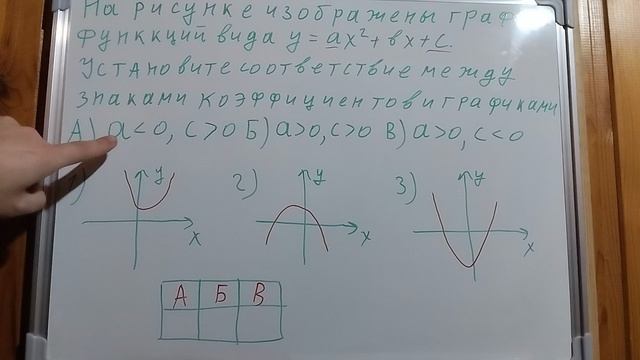 На рисунке изображены граф
функкций вида y = ax² + bx + c.
Установите соответствие между
знаками коэффициентов и графиками
А) a < 0, c > 0 Б) a > 0, c > 0 В) a > 0, c < 0
1) y 2) y 3) y
x x x
А Б В